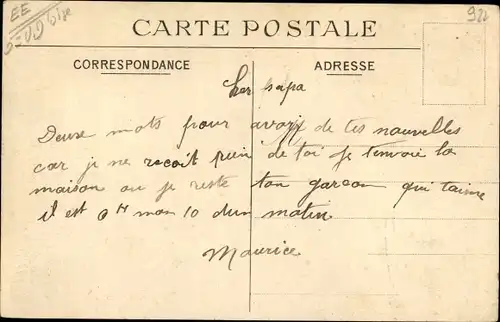 EE
922
CARTE POSTALE
CORRESPONDANCE
ADRESSE
Cher papa
Deuse mots pour avoir de tes nouvelles
car je ne recoit rien de toi je t'envoie la
maison ou je reste ton garcon qui t'aime
il est 0H mon 10 dun matin
Maurice